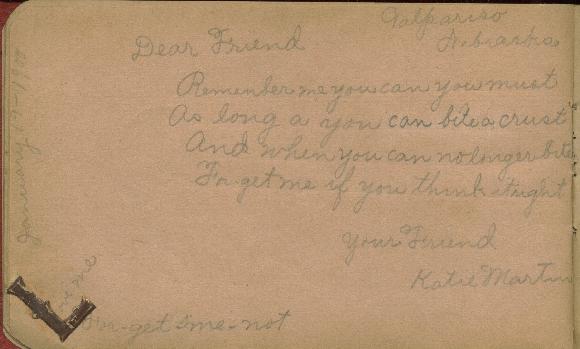 Valpariso
Nebraska
Dear Friend
Remember me you can you must
As long a you can bite a crust
And when you can no longer bite
For get me if you think it right
Your Friend
Katie Martin
January 19-19
For-get-me-not
me